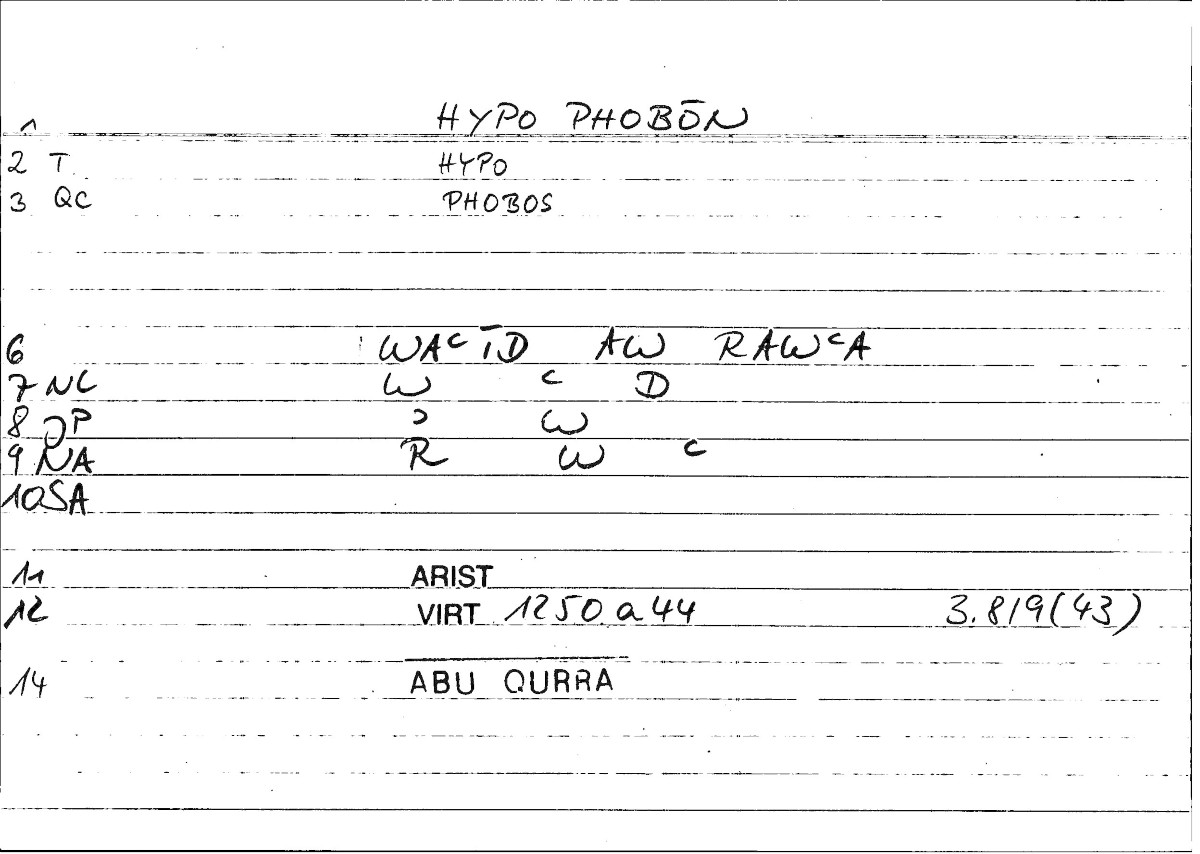 1 HYPO PHOBŌN
2 T. HYPO
3 QC PHOBOS
6 WAʿĪD AW RAWʿA
7 NC W ʿ D
8 QP ʾ W
9 NA R W ʿ
10 SA
11 ARIST
12 VIRT 1250 a 44 3.8/9(43)
14 ABU QURRA